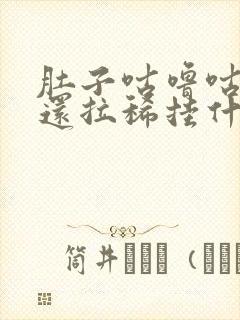 肚子咕噜咕
還拉稀挂什
筒井